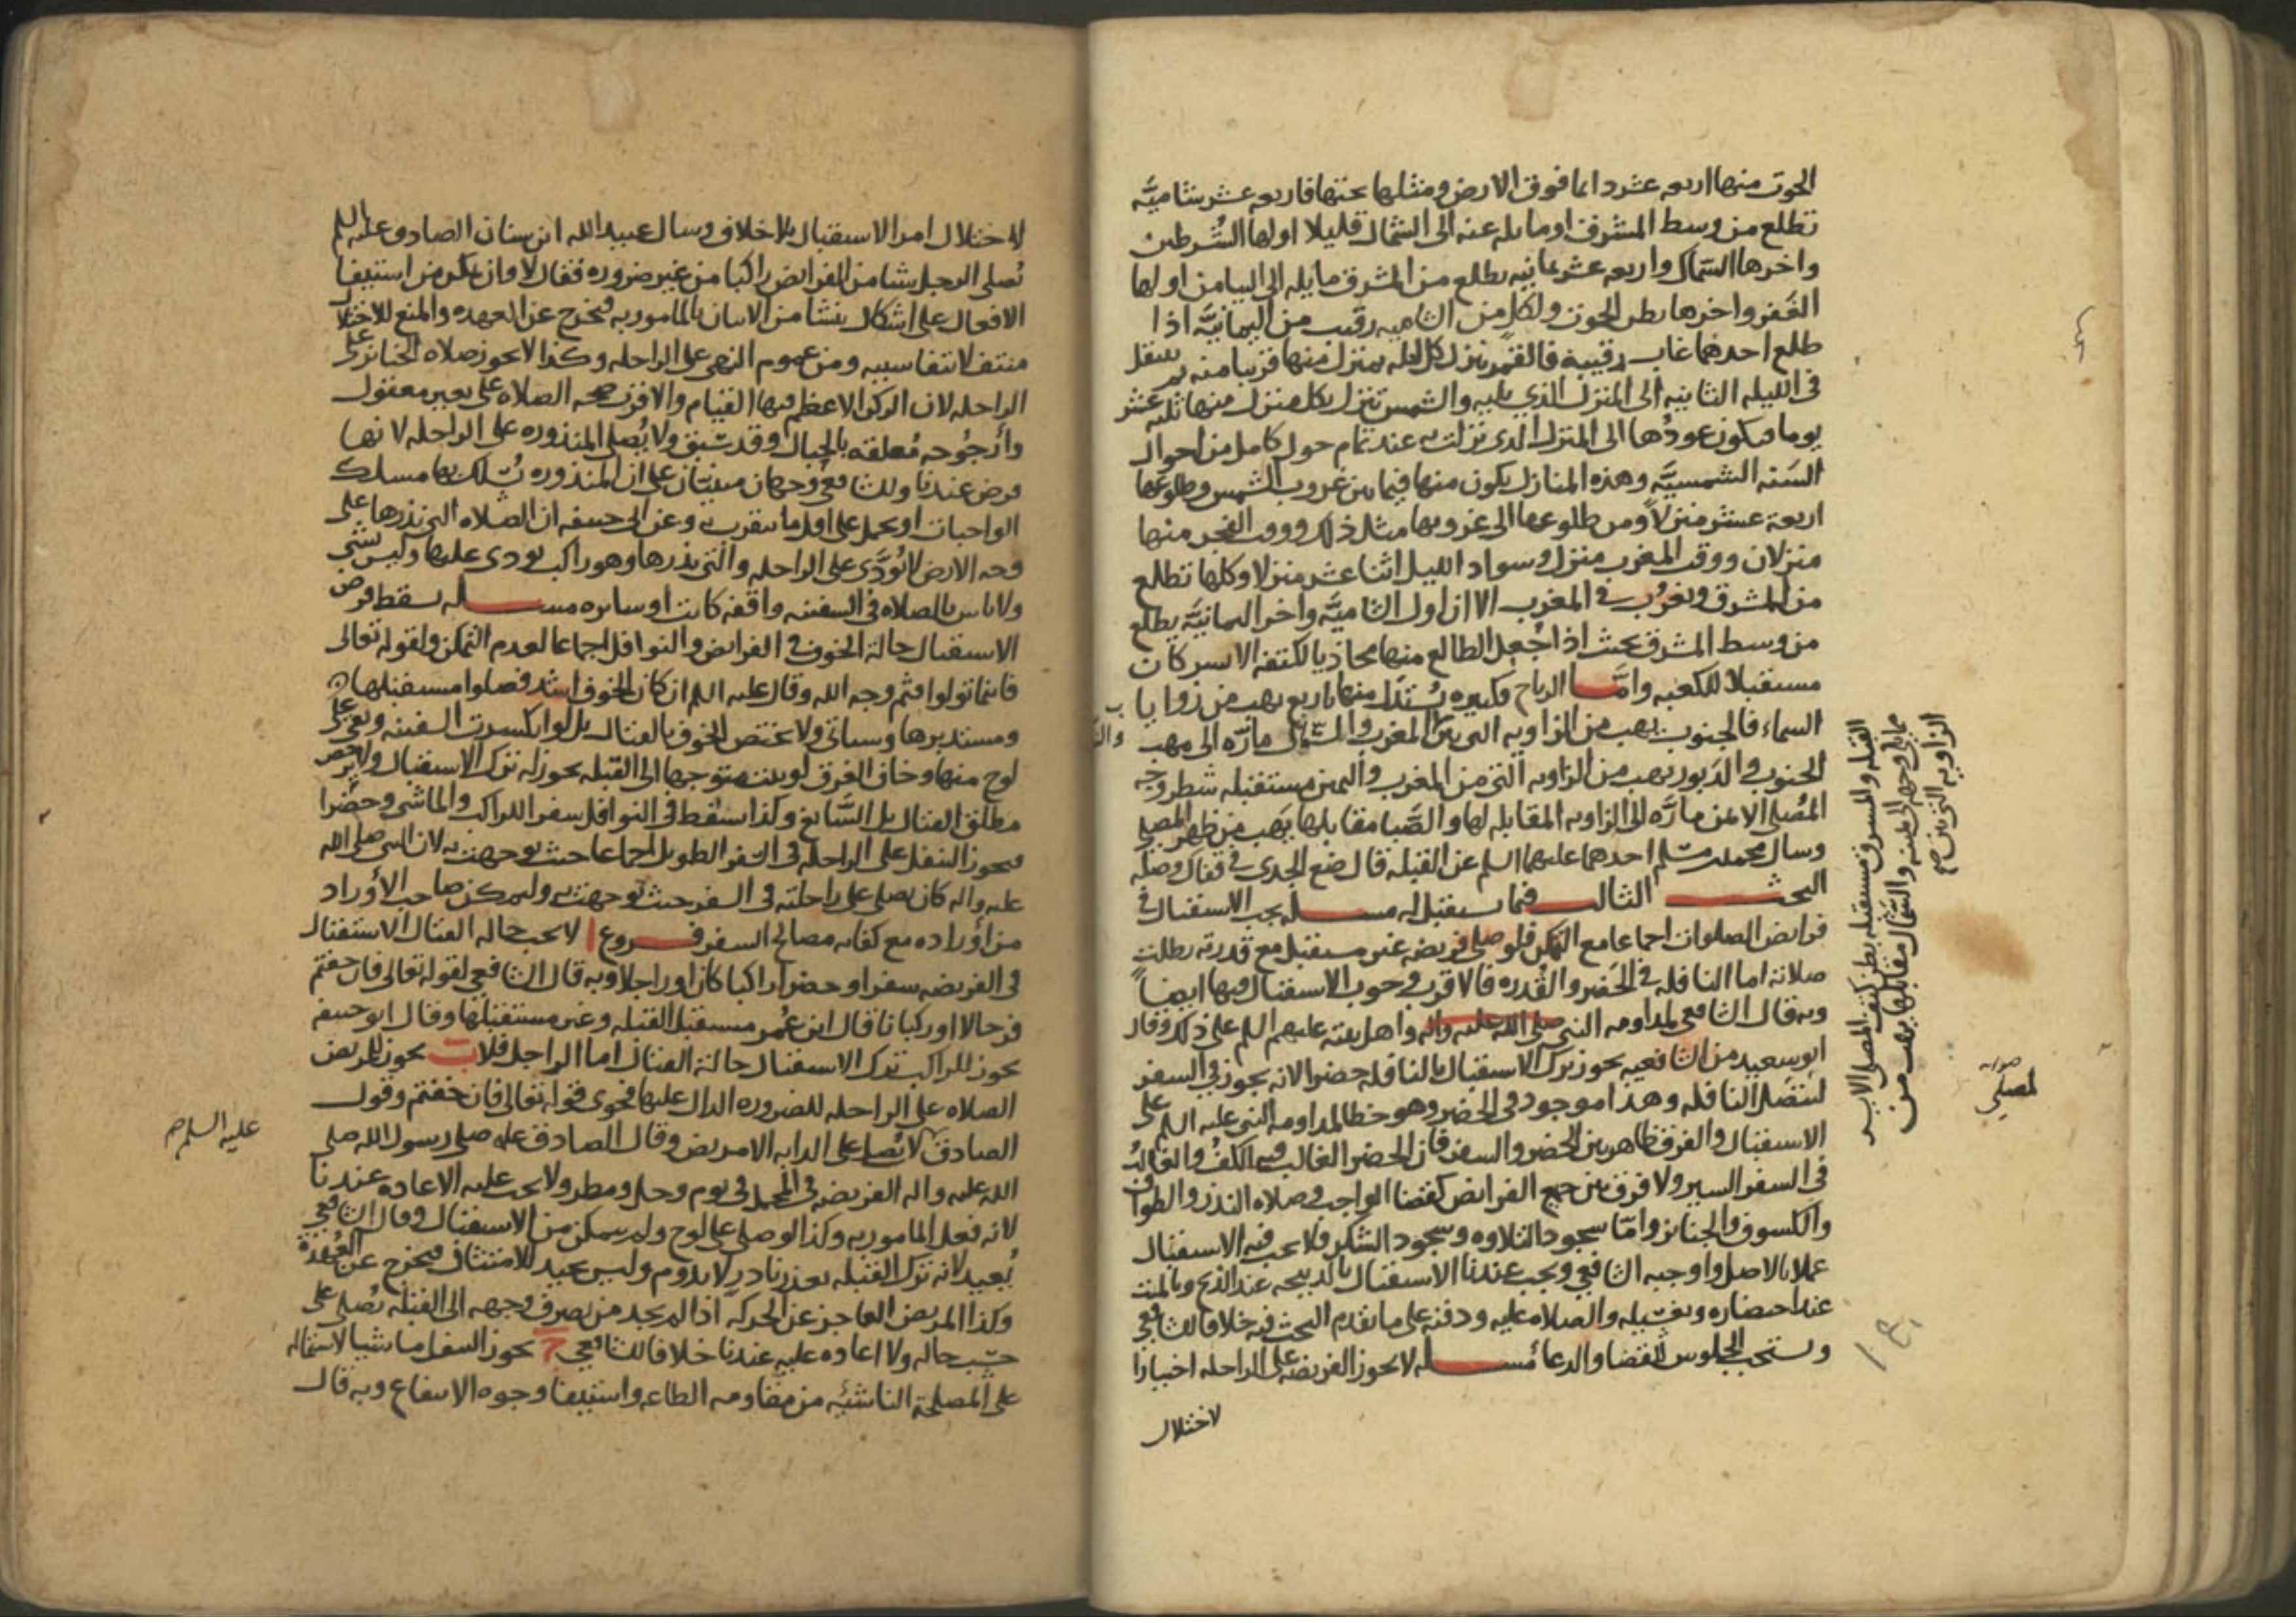 الحوت منها اربعه عشر دائما فوق الارض ومثلها تحتها فاربعه عشر شاميَّه
تطلع من وسط المشرق او مايله عنه الى الشمال قليلا اولها الشرطين
واخرها السماك واربعه عشر يمانيه يطلع من المشرق مايله الى اليمامن اولها
الغفر واخرها بطن الحوت ولكل من الشاميه رقيب من اليمانيَّه اذا
طلع احدهما غاب رقيبه فالقمر ينزل كل ليله بمنزل منها قريبا منه ثم ينتقل
فى الليله الثانيه الى المنزل الذي يليه والشمس تنزل بكل منزل منها ثلثه عشر
يوما فيكون عودُها الى المنزل الدى نزلت به عند تمام حول كامل من احوال
السنه الشمسيَّه وهذه المنازل يكون منها فيما بين غروب الشمس وطلوعها
اربعة عشر منزلاً ومن طلوعها الى غروبها مثل ذلك ووقت الفجر منها
منزلان ووقت المغرب منزل وسواد الليل اثنا عشر منزلا وكلها تطلع
من المشرق وتغرُب فى المغرب الا ان اول الشاميَّه واخر اليمانيَّه يطلع
من وسط المشرق بحيث اذا جُعل الطالع منها محاذيا لكتفه الايسر كان
مستقبلا للكعبه وامَّا الرياح فكثيره يُستدل منها باربع تهب من زوايا
السماء فالجنوب تهب من الزاويه التى بين المغرب والشمال مارّه الى مهب
الجنوب والدبور تهب من الزاويه التى من المغرب واليمن مستقبله شطر وجه
المُصلى الايمن مارَّه الى الزاويه المقابله لها والصَّبا مقابلها تهب من ظهر المصلى
وسال محمد بن مسلم احدهما عليهما السلم عن القبله قال ضع الجدى فى قفاك وصله
البحث الثالث فيما يستقبل له مسله يجب الاستقبال فى
فرايض الصلوات اجماعا مع التمكن فلو صلى فريضه غير مستقبل مع قدرته بطلت
صلاته اما النافله فى الحَضر والقُدره فالاقرب وجوب الاستقبال فيها ايضاً
وبه قال الشافعى لمداومه النبى صلى الله عليه واله واهل بيته عليهم السلم على ذلك وقال
ابو سعيد من الشافعيه يجوز ترك الاستقبال بالنافله حضرا لانه يجوز فى السفر
لتتصل النافله وهذا موجود فى الحضر وهو خطا لمداومه النبى عليه السلم على
الاستقبال والفرق ظاهر بين الحضر والسفر فان الحضر الغالب فيه الكف والغالبُ
فى السفر السير ولا فرق بين جميع الفرايض كقضا الواجب وصلاه النذر والطواف
والكسوف والجنائز وامّا سجود التلاوه وسجود الشكر فلا يجب فيه الاستقبال
عملا بالاصل واوجبه الشافعى ويجب عندنا الاستقبال بالذبيحه عند الذبح وبالميت
عند احتضاره وتغسيله والصلاه عليه ودفنه على ما تقدم البحث فيه خلافا للشافعى
ويستحب الجلوس للقضا والدعا مُسله لا يجوز الفريضه على الراحله اختيارا
لاختلال
القبله والمشرق مستقبله بطن كتف المصلى الايسر
مما يلى وجهه الى يمينه والشمال مقابلها تهب من
الزاويه التى بين صح
صوابه
لمصلى
لاختلال امر الاستقبال بلا خلاف وسال عبيد الله ابن سنان الصادق عليه السلم
تُصلى الرجل شيا من الفرائض راكبا من غير ضروره فقال لا وان تمكن من استيفا
الافعال على اشكال ينشا من الاتيان بالمامور به فيخرج عن العهده والمنع للاختلال
منتف لانتفا سببه ومن عموم النهى على الراحله وكذا لا يجوز صلاه الجنائز على
الراحله لان الركن الاعظم فيها القيام والاقرب صحه الصلاة على بعير معقول
وارجُوحه مُعلقه بالحبال وقد سبق ولا يُصلى المنذوره على الراحله لانها
فرض عندنا وللشافعى وجهان مبنيان على ان المنذوره يُسلك بها مسلك
الواجبات او يحمل على اقل ما يتقرب به وعن ابى حنيفه ان الصلاه التى نذرها على
وجه الارض لا تُوَدَّى على الراحله والتى نذرها وهو راكب يودى عليها وليس بشى
ولا باس بالصلاه فى السفينه واقفه كانت او سائره مسله يسقط فرض
الاستقبال حالة الخوف فى الفرايض والنوافل اجماعا لعدم التمكن ولقوله تعالى
فاينما تولوا فثم وجه الله وقال عليه السلم ان كان الخوف اشد فصلوا مستقبلها
ومستدبرها وسياتى ولا يختص الخوف بالقتال بل لو انكسرت السفينه وبقى على
لوح منها وخاف الغرق لو ثبت متوجها الى القبله يجوز له ترك الاستقبال ولا يرخص
مطلق القتال بل السَّايغ وكذا يسقط فى النوافل سفر اللراكب والماشى وحضرا
فيجوز التنفل على الراحله فى السفر الطويل اجماعا حيث توجهت به لان النبى صلى الله
عليه واله كان يصلى على راحلته فى السفر حيث توجهت به وليتمكن صاحب الأوراد
من أوراده مع كفايه مصالح السفر فروع ا لا يجب حاله القتال الاستقبال
فى الفريضه سفرا او حضرا راكبا كان او راجلا وبه قال الشافعى لقوله تعالى فان خفتم
فرجالا او ركبانا قال ابن عُمر مستقبل القبله وغير مستقبلها وقال ابو حنيفه
يجوز للراكب ترك الاستقبال حالة القتال اما الراجل فلا ب يجوز للمريض
الصلاه على الراحله للضروره الدال عليها فحوى قوله تعالى فان خفتم وقول
الصادق لا تُصل على الدابه الا مريض وقال الصادق عليه صلى رسول الله صلى
الله عليه واله الفريضه فى المحمل فى يوم وحل ومطر ولا يجب عليه الاعاده عندنا
لانه فعل المامور به وكذا لو صلى على لوح ولم يتمكن من الاستقبال وقال الشافعى
يُعيد لانه ترك القبله بعذر نادر لا يدوم وليس بجيد للامتثال فيخرج عن العُهدة
وكذا المريض العاجز عن الحركه اذا لم يجد من يصرف وجهه الى القبله يُصلى على
حسب حاله ولا اعاده عليه عندنا خلافا للشافعى ج يجوز التنفل ماشيا لاشتماله
على المصلحة الناشئه من مقاومه الطاعه واستيفا وجوه الانتفاع وبه قال
عليه السلم صح